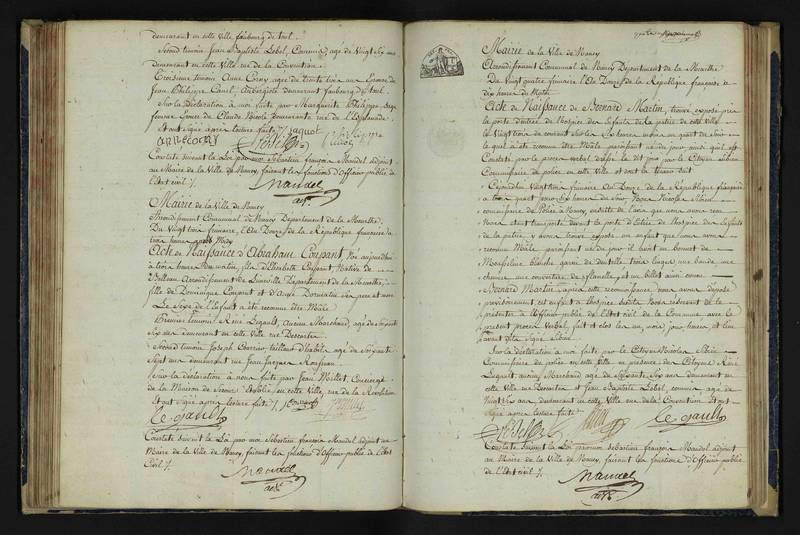 demeurant en cette Ville faubourg de toul.
Second temoin Jean Baptiste Lobel, Commis, agé de Vingt Six ans
demeurant en cette Ville rue de la Convention.
Troisieme temoin Anne Corny agée de trente trois ans Epouse de
Jean Philippe Aubergiste demeurant faubourg de toul.
Sur la Déclaration à moi faite par Marguerite Philippe, Sage
femme Epouse de Claude Nicole demeurante rue de l'Esplanade.
Et ont signé après lecture faite /. jaquot
Constaté suivant la Loi par moi Sébastien françois Mandel adjoint
au Maire de la Ville de Nancy, faisant les fonctions d'Officier public de
l'Etat civil /.
Mandel
adt.
Mairie de la Ville de Nancy
Arrondissement Communal de Nancy Departement de la Meurthe.
Du Vingt trois frimaire, l'An Douze de la République française à
trois heures après Midy
Acte de Naissance d'Abraham Coupant, Né aujourdhui
à trois heures Du matin, fils d'Elisabeth Coupant, Native de
Arrondissement de Luneville Departement de la Meurthe,
fille de Dominique Coupant et d'Anne ses pere et mere
Le Sexe de l'Enfant a été reconnu être Mâle
Premier temoin, René Legault, ancien Marchand, agé de Soixante
Six ans demeurant en cette Ville rue Descartes.
Second temoin Joseph tailleur d'habits agé de Soixante
Sept ans demeurant rue Jean Jacques Rousseau.
Sur la déclaration à nous faite par Jean Millet, Concierge
de la Maison de Secours Etablie en cette Ville, rue de la Révolution
Et ont signé après lecture faite /.
Le gault
Constaté suivant la Loi par moi Sébastien françois Mandel adjoint au
Maire de la Ville de Nancy, faisant les fonctions d'Officier public de l'Etat
Civil /.
Mandel
adt.
Mairie de la Ville de Nancy
Arrondissement Communal de Nancy Departement de la Meurthe
Du Vingt quatre frimaire l'An Douze de la République française à
dix heures du Matin
Acte de Naissance de Bernard Martin, trouvé exposé près
la porte d'entrée de l'hospice des Enfants de la patrie de cette ville
le Vingt trois du courant Sur les Six heures un quart du soir
lequel a été reconnu être Mâle paraissant né du jour ainsi qu'il est
Constaté par le procès verbal dressé le dit jour par le Citoyen
Commissaire de police, en cette Ville et dont la teneur suit
Cejourdhui Vingt trois frimaire An Douze de la République française
à Six heures du soir, Nous Nicolas
commissaire de Police à Nancy, ensuite de l'avis que nous avons reçu
Nous etant transporté devant la porte d'entrée de l'hospice des Enfants
de la patrie y avons trouvé exposé, un enfant que nous avons
reconnu Mâle paraissant né du jour il avait un bonnet de
Mousseline blanche garni de dentelle trois langes une bande une
chemise une couverture de flanelle, et un billet ainsi conçu
Bernard Martin, après cette reconnaissance nous avons déposé
provisoirement, cet enfant à l'hospice
présenter à l'Officier public de l'Etat civil de la Commune avec le
présent procès Verbal, fait et clos les an, mois, jour, heure et lieu
avant dits Signé
Sur la déclaration à moi faite par le Citoyen Nicolas
Commissaire de police en cette ville en présence des Citoyens René
Legault, ancien Marchand agé de Soixante Six ans demeurant en
cette Ville rue Descartes et Jean Baptiste Lobel, commis agé de
Vingt Six ans, demeurant en cette Ville rue de la Convention. Et ont
Signé après lecture faite
Le gault
Constaté suivant la Loi par moi Sébastien françois Mandel adjoint
au Maire de la Ville de Nancy, faisant les fonctions d'Officier public
de l'Etat civil /.
Mandel
adt.